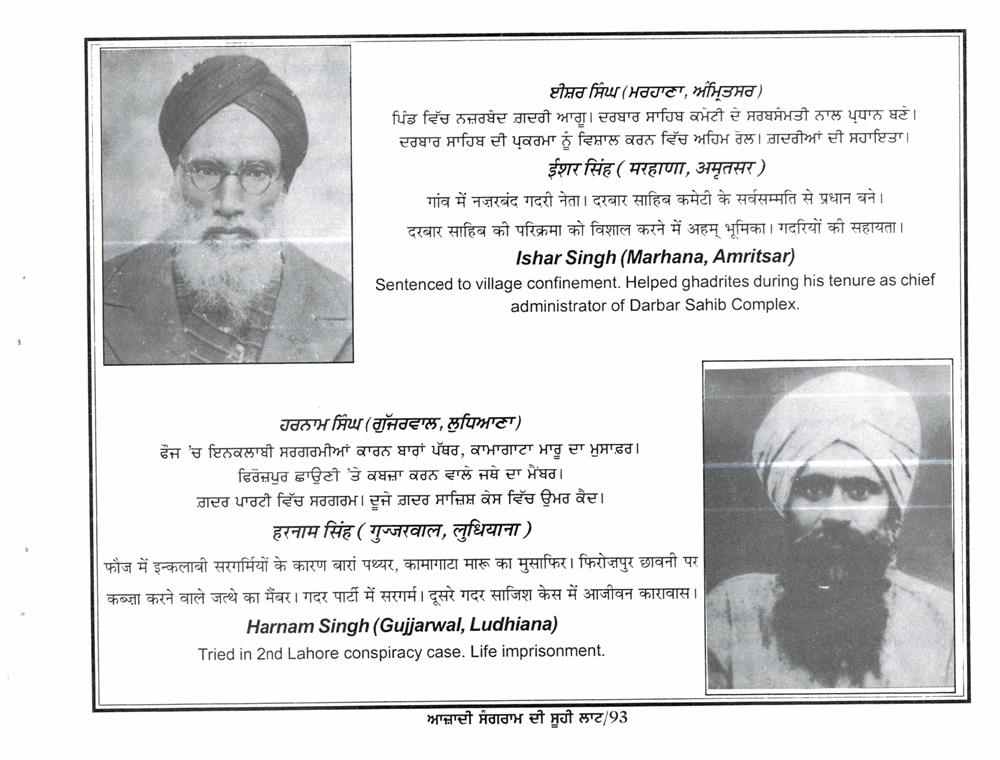 ਈਸ਼ਰ ਸਿੰਘ (ਮਰਹਾਣਾ, ਅੰਮ੍ਰਿਤਸਰ)
ਪਿੰਡ ਵਿੱਚ ਨਜ਼ਰਬੰਦ ਗ਼ਦਰੀ ਆਗੂ। ਦਰਬਾਰ ਸਾਹਿਬ ਕਮੇਟੀ ਦੇ ਸਰਬਸੰਮਤੀ ਨਾਲ ਪ੍ਰਧਾਨ ਬਣੇ।
ਦਰਬਾਰ ਸਾਹਿਬ ਦੀ ਪ੍ਰਕਰਮਾ ਨੂੰ ਵਿਸ਼ਾਲ ਕਰਨ ਵਿੱਚ ਅਹਿਮ ਰੋਲ। ਗ਼ਦਰੀਆਂ ਦੀ ਸਹਾਇਤਾ।
ईशर सिंह ( मरहाणा, अमृतसर )
गांव में नज़रबंद गदरी नेता। दरबार साहिब कमेटी के सर्वसम्मति से प्रधान बने।
दरबार साहिब की परिक्रमा को विशाल करने में अहम् भूमिका। गदरियों की सहायता।
Ishar Singh (Marhana, Amritsar)
Sentenced to village confinement. Helped ghadrites during his tenure as chief
administrator of Darbar Sahib Complex.
ਹਰਨਾਮ ਸਿੰਘ (ਗੁੱਜਰਵਾਲ, ਲੁਧਿਆਣਾ)
ਫੌਜ 'ਚ ਇਨਕਲਾਬੀ ਸਰਗਰਮੀਆਂ ਕਾਰਨ ਬਾਰਾਂ ਪੱਥਰ, ਕਾਮਾਗਾਟਾ ਮਾਰੂ ਦਾ ਮੁਸਾਫ਼ਰ।
ਫਿਰੋਜ਼ਪੁਰ ਛਾਉਣੀ 'ਤੇ ਕਬਜ਼ਾ ਕਰਨ ਵਾਲੇ ਜਥੇ ਦਾ ਮੈਂਬਰ।
ਗ਼ਦਰ ਪਾਰਟੀ ਵਿੱਚ ਸਰਗਰਮ। ਦੂਜੇ ਗ਼ਦਰ ਸਾਜ਼ਿਸ਼ ਕੇਸ ਵਿੱਚ ਉਮਰ ਕੈਦ।
हरनाम सिंह ( गुज्जरवाल, लुधियाना )
फौज में इन्कलाबी सरगर्मियों के कारण बारां पथ्थर, कामागाटा मारू का मुसाफिर। फिरोज़पुर छावनी पर
कब्ज़ा करने वाले जत्थे का मैंबर। गदर पार्टी में सरगर्म। दूसरे गदर साजिश केस में आजीवन कारावास।
Harnam Singh (Gujjarwal, Ludhiana)
Tried in 2nd Lahore conspiracy case. Life imprisonment.
ਆਜ਼ਾਦੀ ਸੰਗਰਾਮ ਦੀ ਸੂਹੀ ਲਾਟ/93